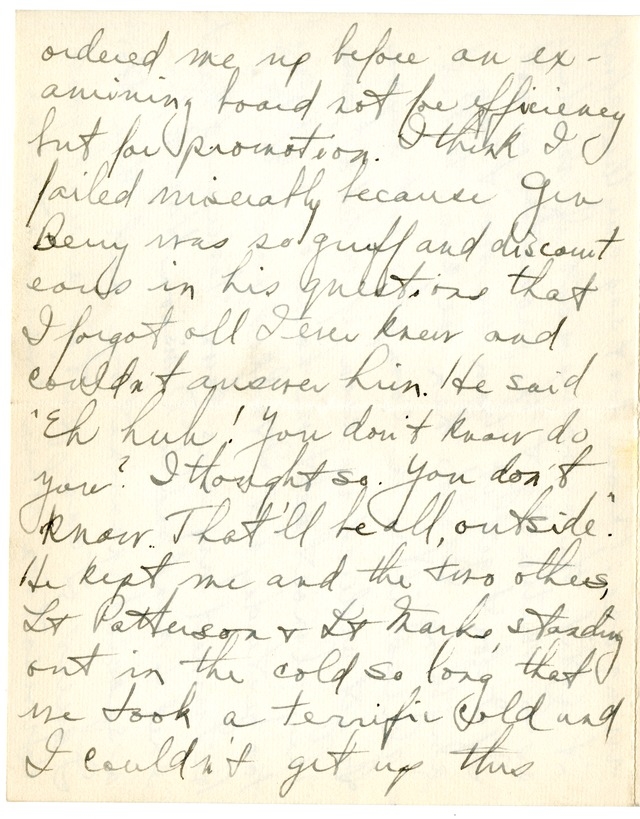 ordered me up before an ex-
amining board not for efficiency
but for promotion. I think I
failed miserably because Gen
Berry was so gruff and discourt
eous in his questions that
I forgot all I ever knew and
couldn't answer him. He said
"Eh huh! You don't know do
you? I thought so. You don't
know. That'll be all, outside."
He kept me and the two others,
Lt Patterson & Lt Marks, standing
out in the cold so long that
we took a terrific cold and
I couldn't get up this